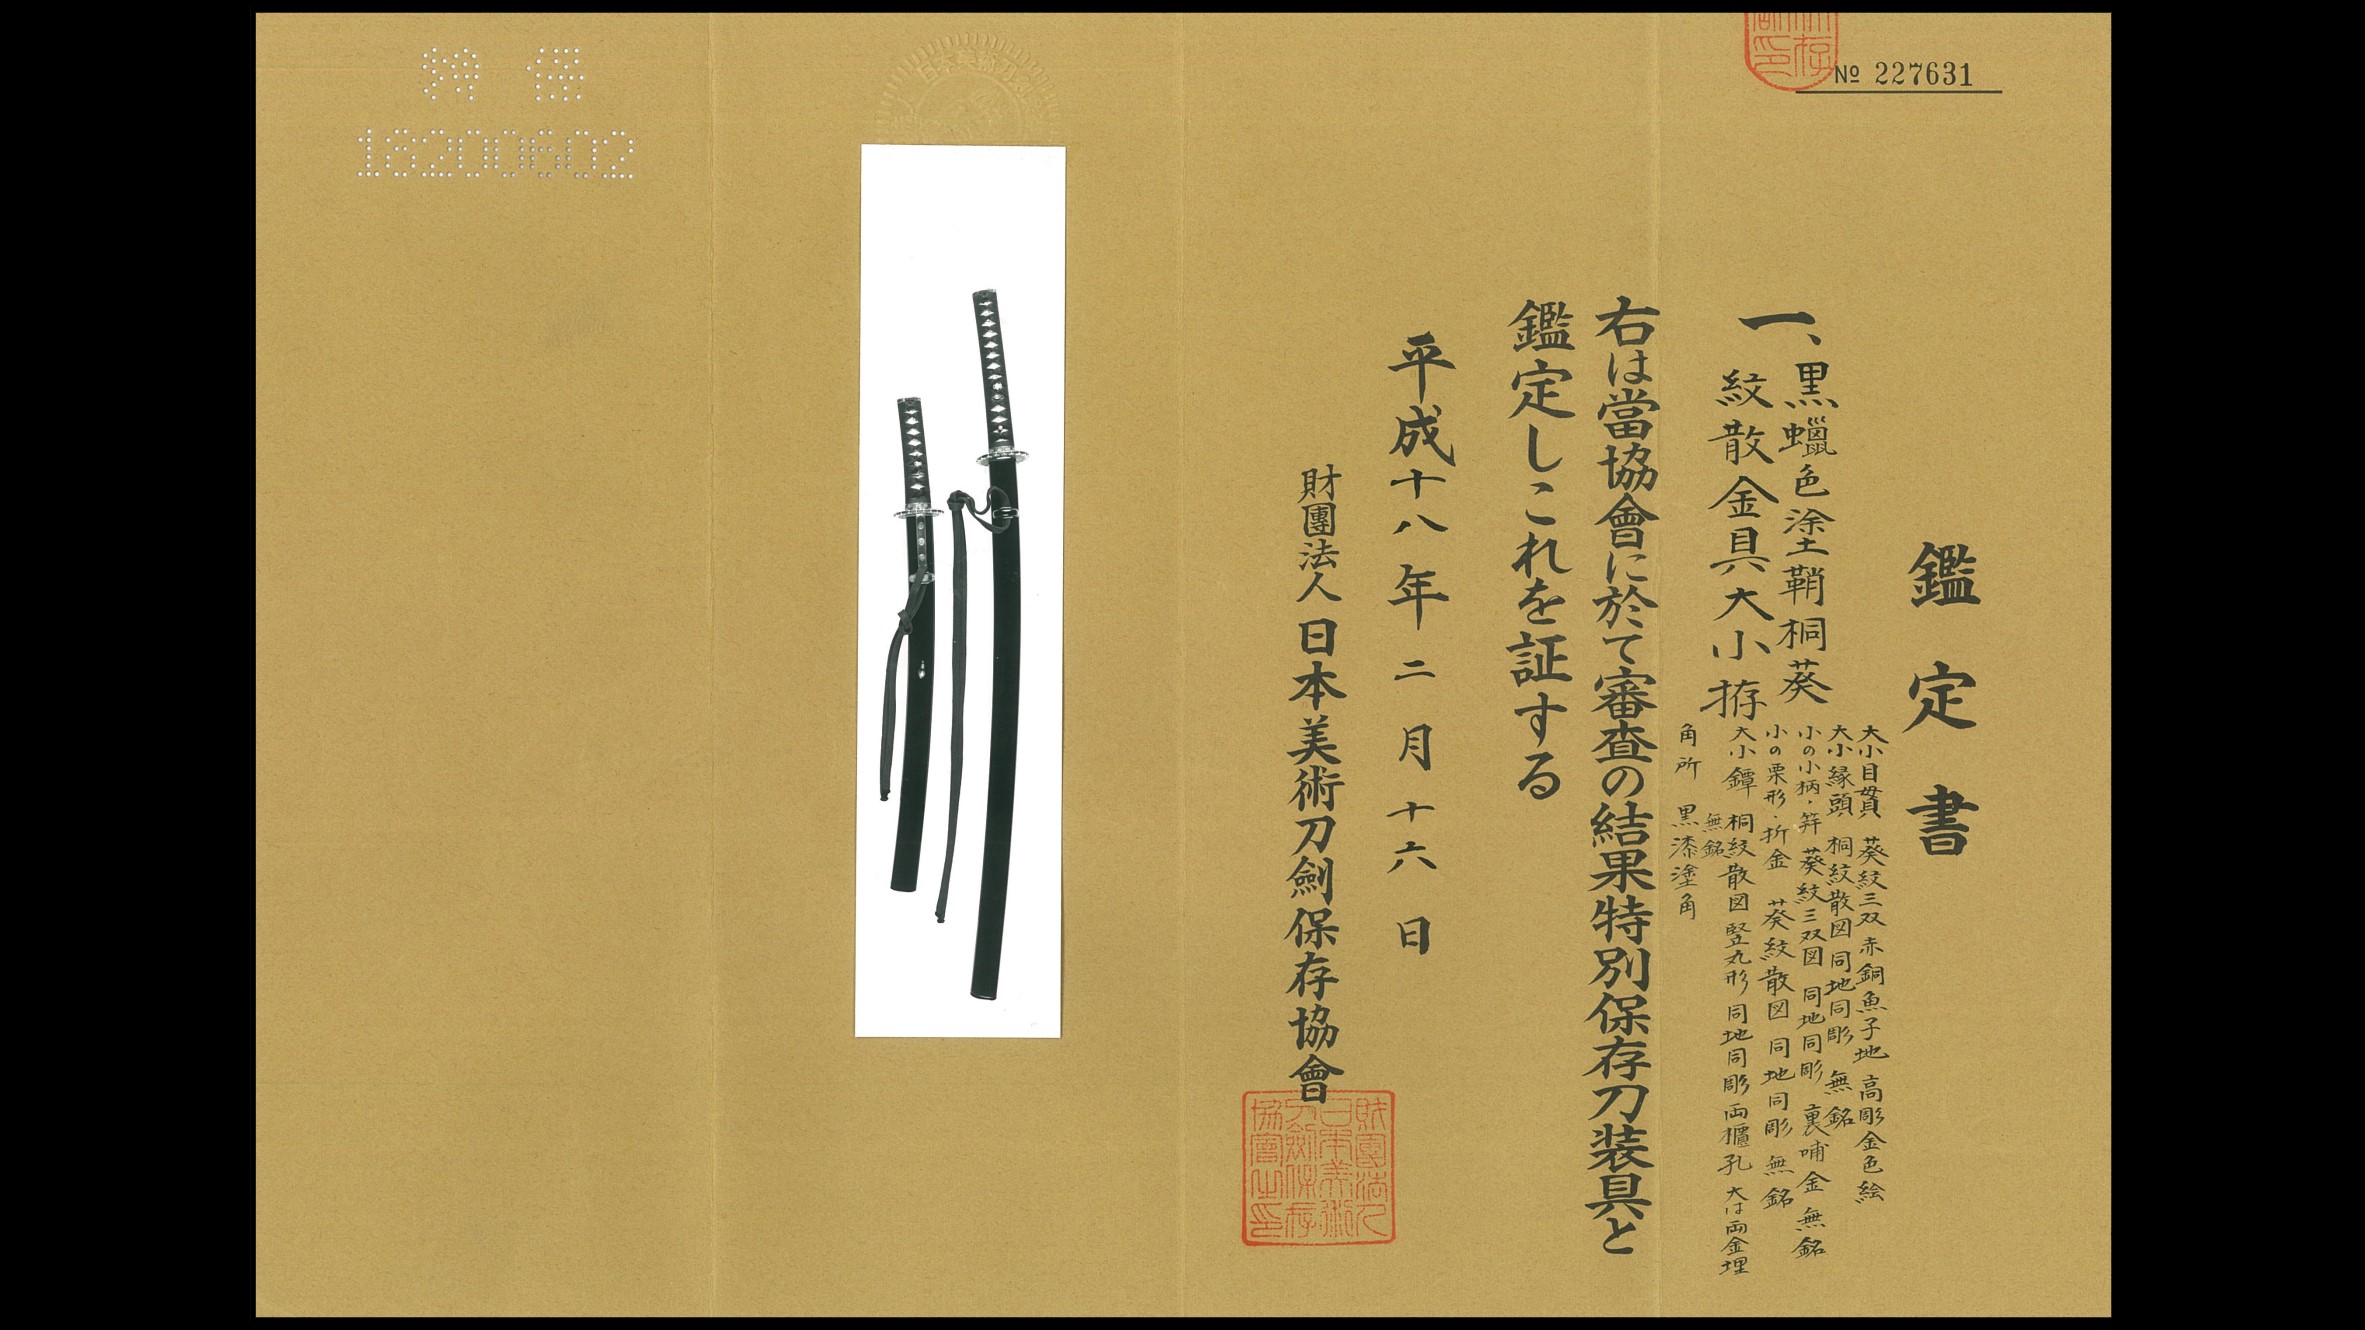 № 227631
鑑定書
一、黒蠟色塗鞘桐葵
紋散金具大小拵
大小目貫 葵紋三双 赤銅魚子地 高彫金色絵
大小縁頭 桐紋散図 同地同彫 無銘
小の小柄・笄 葵紋三双図 同地同彫 裏哺金 無銘
小の栗形・折金 葵紋散図 同地同彫 無銘
大小鐔 桐紋散図 竪丸形 同地同彫 両櫃孔 大は両金埋
無銘
角所 黒漆塗角
右は當協會に於て審査の結果特別保存刀装具と
鑑定しこれを証する
平成十八年二月十六日
財團法人日本美術刀劍保存協會
財團法人日本美術刀劍保存協會之印
18200602